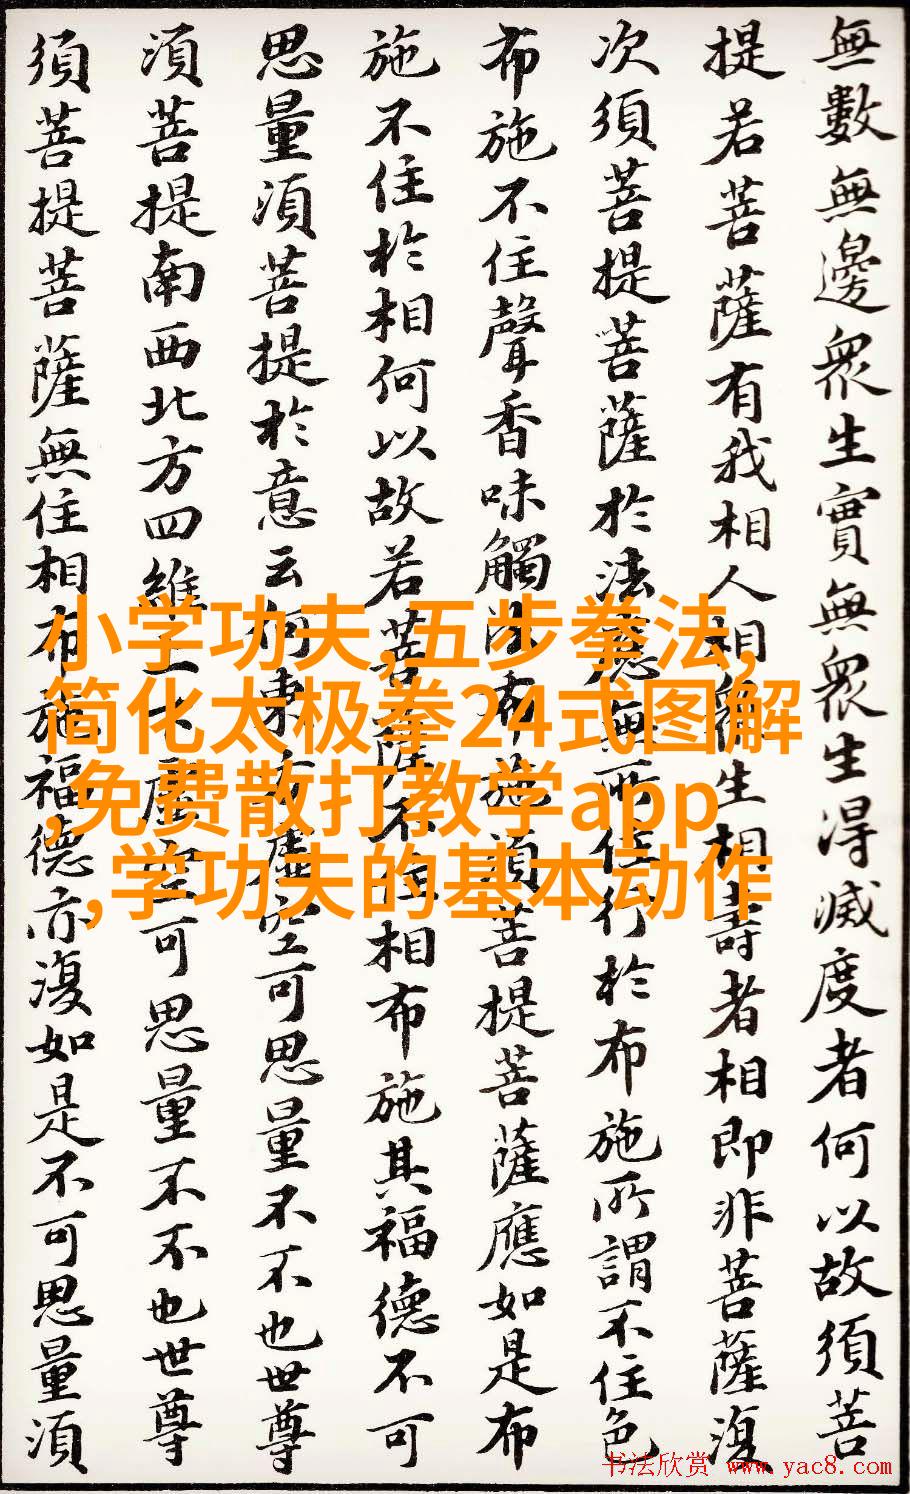 無數無邊衆生實無衆生得滅度者何以故須菩
提若菩薩有我相人相衆生相壽者相即非菩薩復
次須菩提菩薩於法應無所住行於布施所謂不住色
布施不住聲香味觸法布施須菩提菩薩應如是布
施不住於相何以故若菩薩不住相布施其福德不可
思量須菩提於意云何東方虛空可思量不不也世尊
須菩提南西北方四維上下虛空可思量不不也世尊
須菩提菩薩無住相布施福德亦復如是不可思量須
小学功夫,五步拳法,
简化太极拳24式图解
,免费散打教学app
,学功夫的基本动作
书法欣赏 www.yac8.com